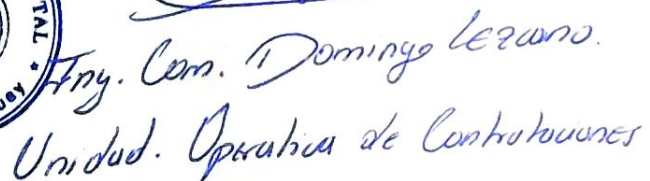 TAL *
Ing. Com. Domingo Lezcano.
Unidad. Operativa de Contrataciones